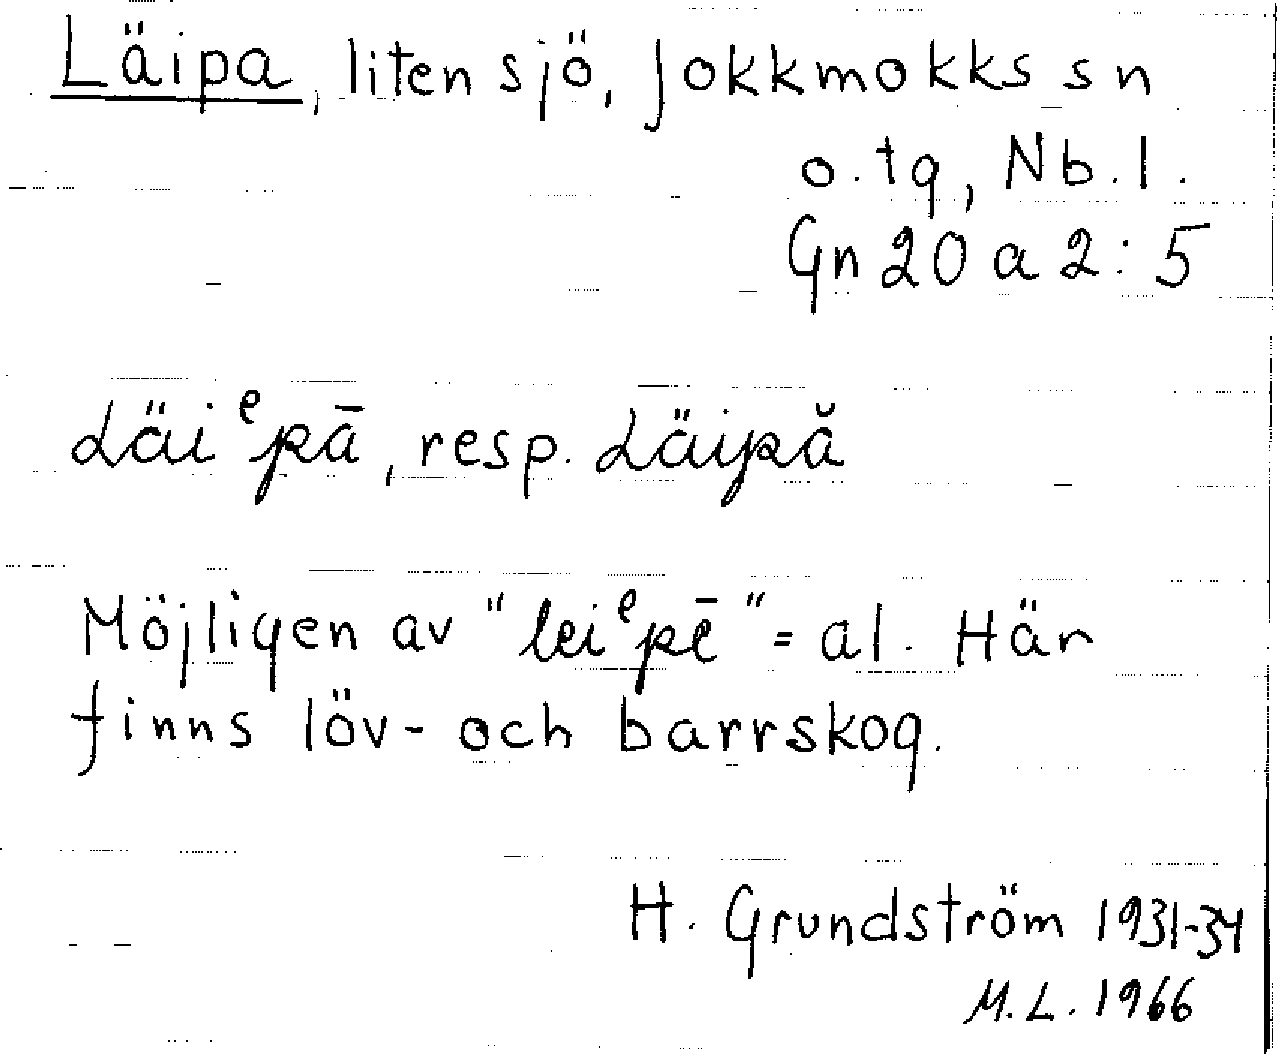 Läipa, liten sjö, Jokkmokks sn
o. tg, Nb. l.
Gn 20 a 2:5
Läiᵉpā, resp. Läipă
Möjligen av "leiᵉpē" = al. Här
finns löv- och barrskog.
H. Grundström 1931-34
M.L. 1966